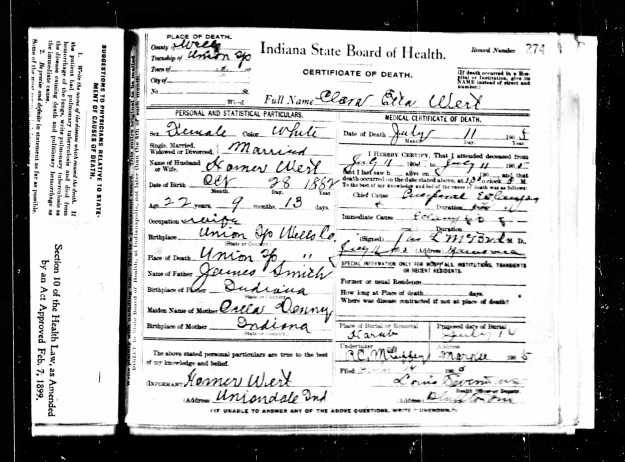 SUGGESTIONS TO PHYSICIANS RELATIVE TO STATE-
MENT OF CAUSES OF DEATH.
1. Write the name of the disease which caused the death. If
the patient had pulmonary tuberculosis and died from
hemorrhage of the lungs, write pulmonary tuberculosis as
the disease causing death and pulmonary hemorrhage as
the immediate cause.
2. Be precise and definite in statement as far as possible.
Section 10 of the Health Law, as Amended
by an Act Approved Feb. 7, 1899.
PLACE OF DEATH.
County of Wells
Township of Union Tp
Town of
City of
No. St.
Ward.
Indiana State Board of Health.
Record Number 274
CERTIFICATE OF DEATH.
(If death occurred in a Hos-
pital or Institution, give its
NAME instead of street and
number.)
Full Name Clara Etta Wert
PERSONAL AND STATISTICAL PARTICULARS.
Sex Female Color White
Single, Married,
Widowed or Divorced Married
Name of Husband
or Wife. Homer Wert
Date of Birth Oct 28 1882
Month Day. Year
Age 22 years 9 months, 13 days.
Occupation wife
Birthplace Union Tp Wells Co.
(State or Country)
Place of Death Union Tp " "
Name of Father James Smith
Birthplace of Father Indiana
State or Country
Maiden Name of Mother Denney
Birthplace of Mother Indiana
State or Country
The above stated personal particulars are true to the best
of my knowledge and belief.
(INFORMANT) Homer Wert
(Address Uniondale Ind
MEDICAL CERTIFICATE OF DEATH.
Date of Death July 11 1905
Month Day Year
I HEREBY CERTIFY, That I attended deceased from
July 11 190 to July 11 1905
and I last saw h alive on 190 and that
death occurred on the date stated above, at o'clock M.
To the best of my knowledge and belief the cause of death was as follows:
Chief Cause Puerperal Eclampsia
Duration
Immediate Cause
Duration
(Signed) M. D.,
Address
SPECIAL INFORMATION ONLY FOR HOSPITALS, INSTITUTIONS, TRANSIENTS
OR RECENT RESIDENTS.
Former or usual Residence
How long at Place of death days.
Where was disease contracted if not at place of death?
Place of Burial or Removal
Proposed date of Burial
July
Undertaker
Address
Markle 1905
Filed
Louis Severin
Address Bluffton
(IF UNABLE TO ANSWER ANY OF THE ABOVE QUESTIONS, WRITE "UNKNOWN.")